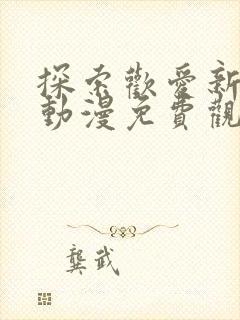 探索歡愛新
動漫免費觀
龔武